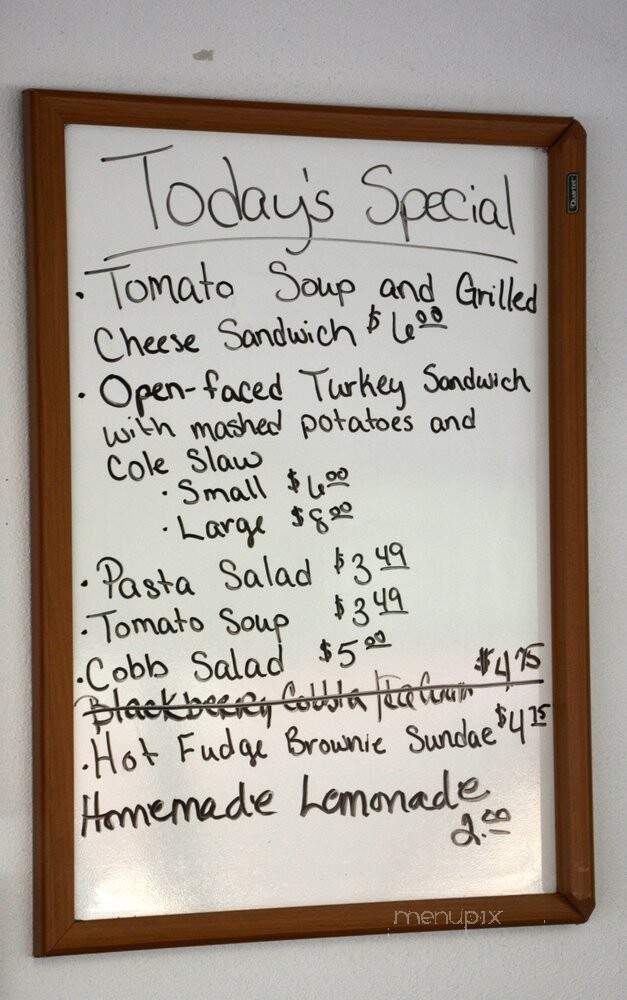 Today's Special
Quartet
· Tomato Soup and Grilled
Cheese Sandwich $6.00
· Open-faced Turkey Sandwich
with mashed potatoes and
Cole Slaw
· Small $6.00
· Large $8.00
· Pasta Salad $3.49
· Tomato Soup $3.49
· Cobb Salad $5.00
Blackberry $4.75
· Hot Fudge Brownie Sundae $4.75
Homemade Lemonade
2.00
menupix